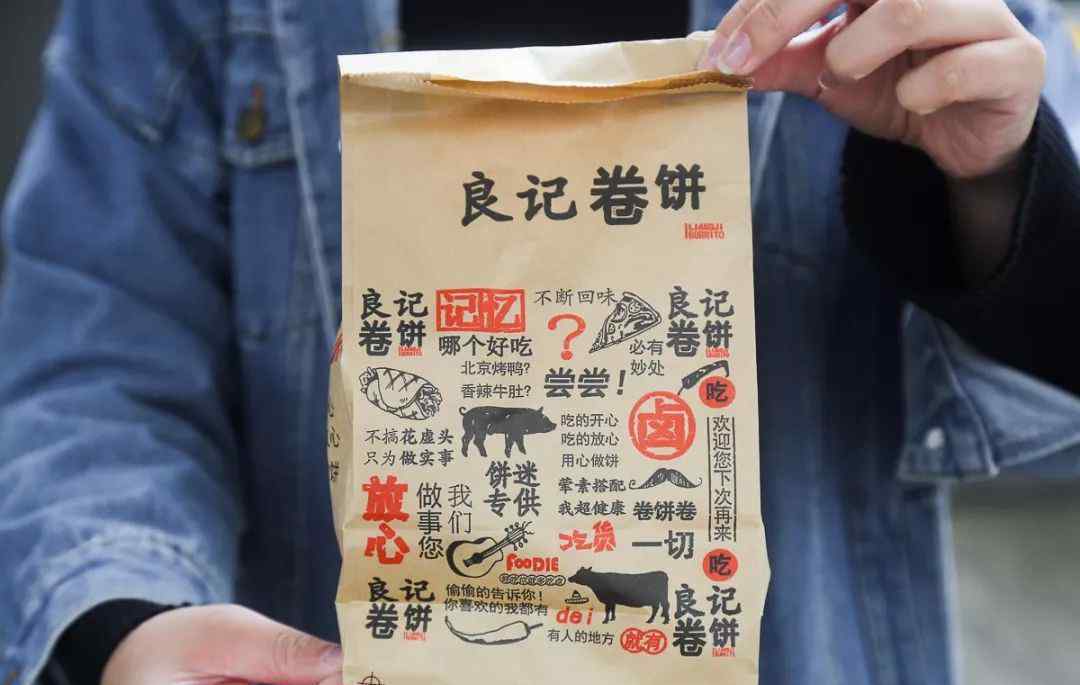 良记卷饼
LIANGJI
BURRITO
良记
卷饼
记忆
哪个好吃
北京烤鸭?
香辣牛肚?
不断回味
?
尝尝!
必有
妙处
良记
卷饼
吃
不搞花虚头
只为做实事
饼迷
专供
吃的开心
吃的放心
用心做饼
卤
荤素搭配
我超健康
卷饼卷
一切
欢迎您下次再来
吃
放心
我们
做事您
吃货
FOODIE
良记
卷饼
偷偷的告诉你!
你喜欢的我都有
dei
有人的地方
就有
良记
卷饼